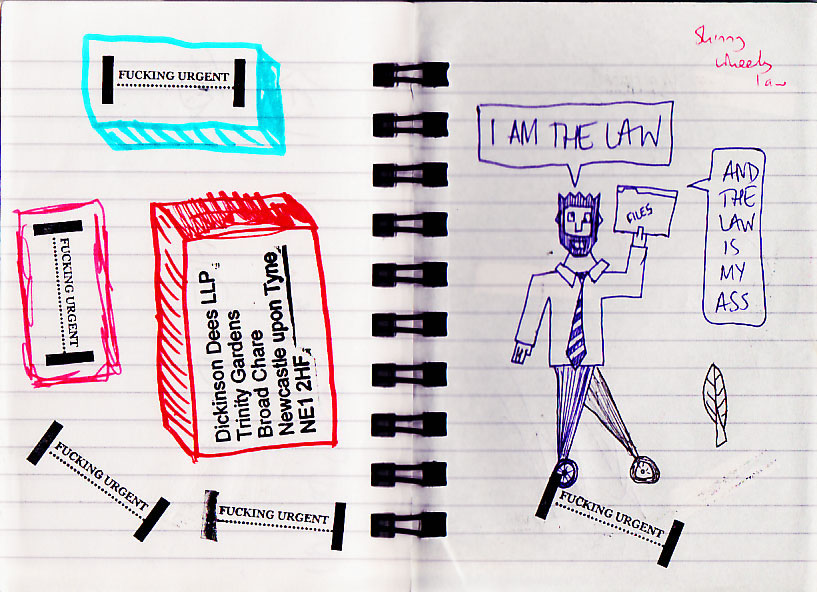 FUCKING URGENT
FUCKING URGENT
Dickinson Dees LLP
Trinity Gardens
Broad Chare
Newcastle upon Tyne
NE1 2HF
FUCKING URGENT
FUCKING URGENT
wheely
law
I AM THE LAW
FILES
AND
THE
LAW
IS
MY
ASS
FUCKING URGENT